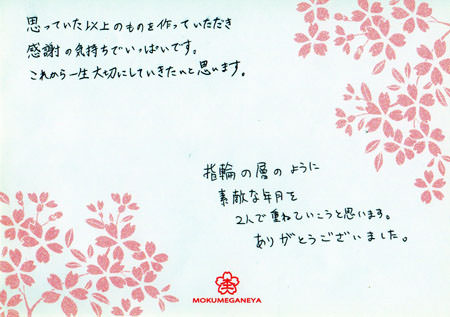 思っていた以上のものを作っていただき
感謝の気持ちでいっぱいです。
これから一生大切にしていきたいと思います。
指輪の層のように
素敵な年月を
2人で重ねていこうと思います。
ありがとうございました。
MOKUMEGANEYA